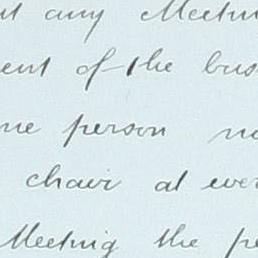 any Meetin
ent of the bus
me person no
chair at ever
Meeting the pe